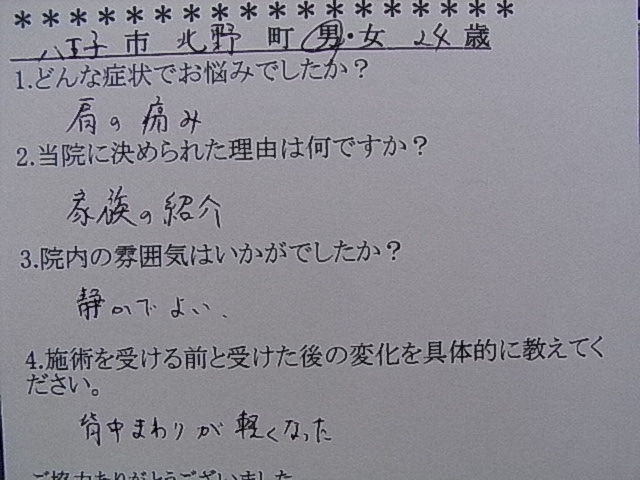 *******************
八王子 市 北野 町 男・女 24 歳
1.どんな症状でお悩みでしたか？
肩の痛み
2.当院に決められた理由は何ですか？
家族の紹介
3.院内の雰囲気はいかがでしたか？
静かでよい、
4.施術を受ける前と受けた後の変化を具体的に教えてく
ださい。
背中まわりが軽くなった
ご協力ありがとうございました